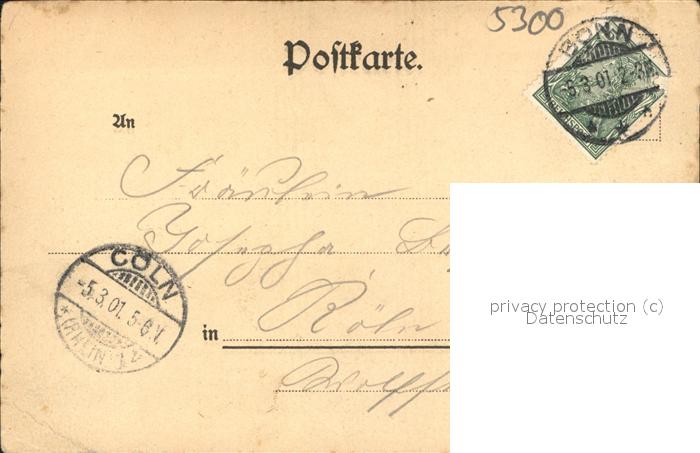 5300
Postkarte.
BONN 1
-5.3.01. 2-3N.
An
Fräulein
Josepha
CÖLN
-5.3.01. 5-6.N.
* (RHEIN) 1
in Köln
privacy protection (c)
Datenschutz